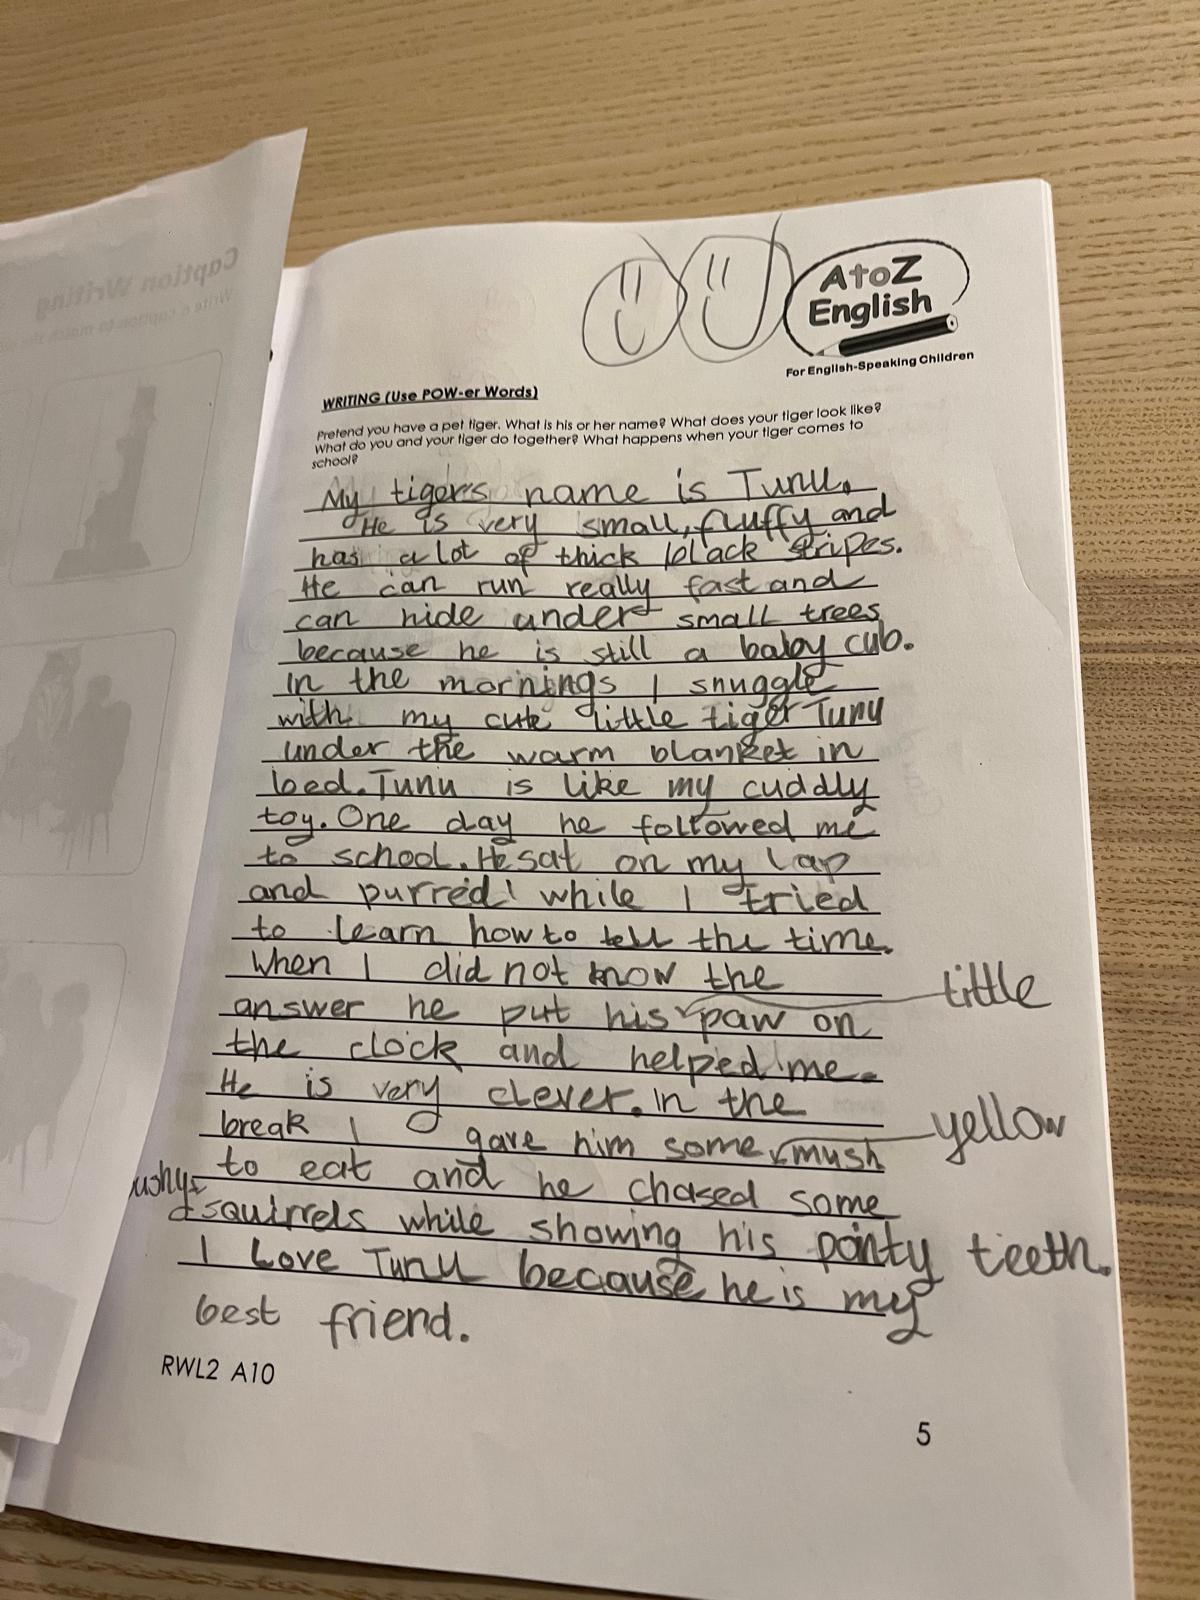 Caption Writing
AtoZ
English
For English-Speaking Children
WRITING (Use POW-er Words)
Pretend you have a pet tiger. What is his or her name? What does your tiger look like?
What do you and your tiger do together? What happens when your tiger comes to
school?
My tiger's name is Tunu.
He is very small, fluffy and
has a lot of thick black stripes.
He can run really fast and
can hide under small trees
because he is still a baby cub.
In the mornings I snuggle
with my cute little tiger Tunu
under the warm blanket in
bed. Tunu is like my cuddly
toy. One day he followed me
to school. He sat on my lap
and purred while I tried
to learn how to tell the time.
When I did not know the
answer he put his little paw on
the clock and helped me.
He is very clever. In the
break I gave him some yellow mush
to eat and he chased some
squirrels while showing his pointy teeth.
I Love Tunu because he is my
best friend.
RWL2 A10
5